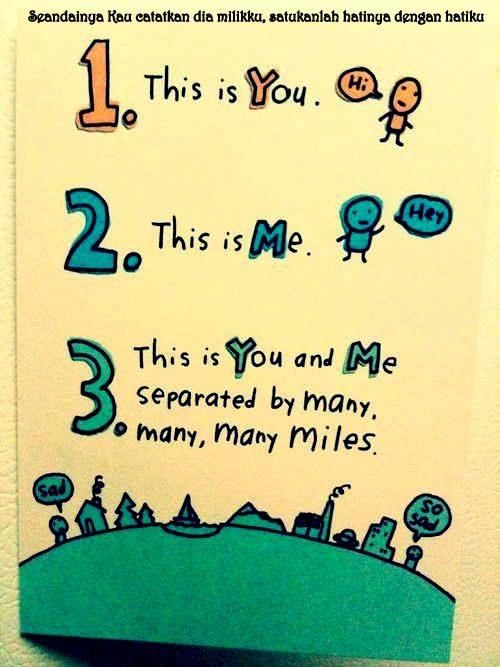 Seandainya Kau catatkan dia milikku, satukanlah hatinya dengan hatiku
1. This is You. Hi
2. This is Me. Hey
3. This is You and Me
separated by many,
many, many miles.
sad
so
sad